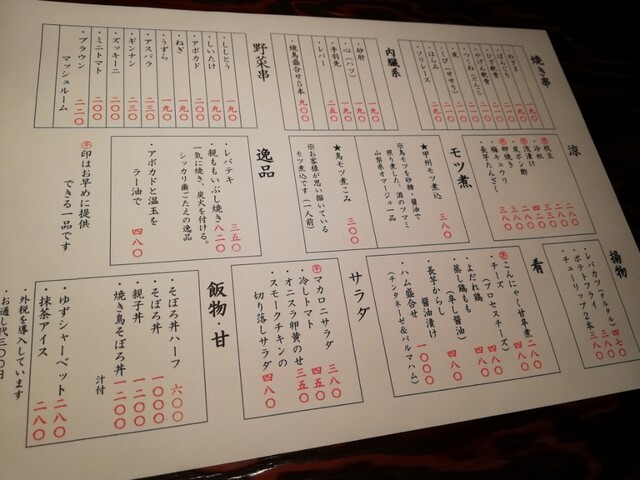 焼き串
ぼんじり
つくね(たんご)
皮
くび(せせり)
はらみ
ソリレース
内臓系
・砂肝 一九〇
・心(ハツ) 一九〇
・手羽先 二五〇
・レバー 一九〇
・焼鳥盛合せ5本 九〇〇
野菜串
・ししとう 一九〇
・しいたけ 一九〇
・アボカド 二〇〇
・ねぎ 一九〇
・うずら 一九〇
・アスパラ 二三〇
・ギンナン 二三〇
・ズッキーニ 二〇〇
・ミニトマト 二〇〇
・ブラウン
マッシュルーム 二二〇
涼
枝豆
冷奴
浅漬け
・皮ポン酢
卵焼き
・梅キュウリ
モツ煮
★甲州モツ煮込 三八〇
鳥モツを砂糖・醤油で
照り煮した、酒のツマミ
山梨県オマージュ一品
★鳥モツ煮こみ 三〇〇
※お客様が思い描いている
モツ煮込です(一人前)
逸品
・レバテキ 三五〇
・親ももいぶし焼き 八二〇
一気に焼き、炭火を付ける。
シッカリ歯ごたえの逸品
・アボカドと温玉を
ラー油で 四八〇
㋜印はお早めに提供
できる一品です
揚物
・レバカツ(タルタル) 四七〇
・ポテトフライ 三八〇
・チューリップ2本 三八〇
肴
㋜こんにゃく甘辛煮 二八〇
・チーズ 四八〇
(プロセスチーズ)
・よだれ鶏 四八〇
(辛し醤油)
・蒸し鶏もも 四八〇
醤油漬け
・長芋からし
・ハム盛合せ 一〇〇〇
(チンタネーゼ&パルマハム)
サラダ
㋜マカロニサラダ 三八〇
・冷しトマト 四五〇
・オニスラ卵黄のせ 三五〇
・スモークチキンの
切り落しサラダ 四八〇
飯物・甘
・そぼろ丼ハーフ 六〇〇
・そぼろ丼 一〇〇〇
・親子丼 一二〇〇
・焼き鳥そぼろ丼 一二〇〇
汁付
・ゆずシャーベット 二八〇
・抹茶アイス 二八〇
・外税を導入しています
・お通し代三〇〇円